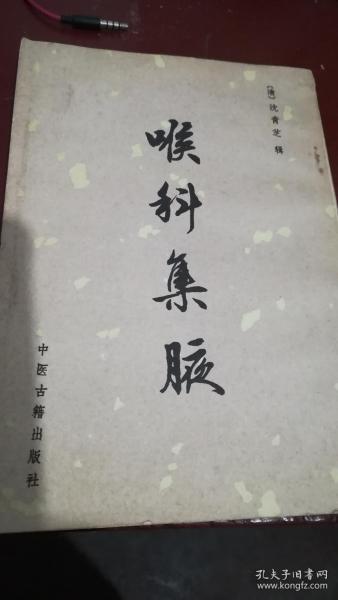 [清]沈青芝 辑
喉科集腋
中医古籍出版社
孔夫子旧书网